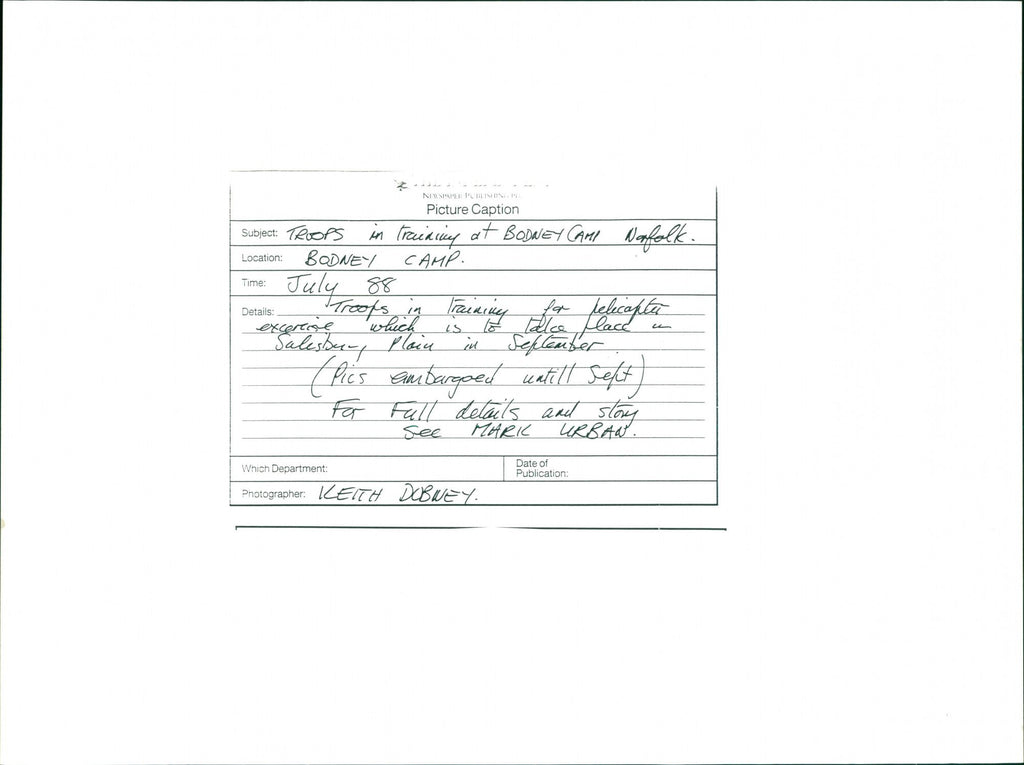 NEWSPAPER PUBLISHING PLC
Picture Caption
Subject: TROOPS in training at BODNEY CAMP Norfolk.
Location: BODNEY CAMP.
Time: July 88
Details: Troops in training for helicopter
excercise which is to take place in
Salesbury Plain in September
(Pics embargoed untill Sept)
For Full details and story
See MARK URBAN.
Which Department:
Date of
Publication:
Photographer: KEITH DOBNEY.